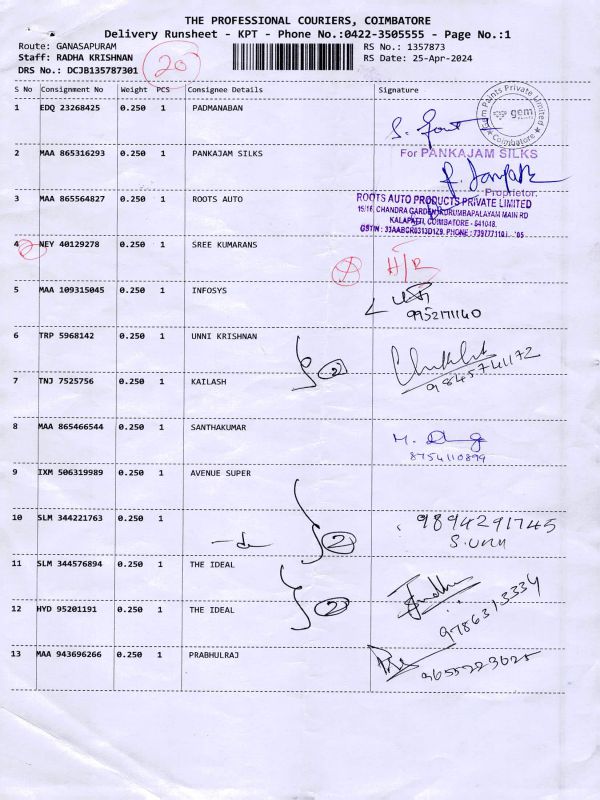 THE PROFESSIONAL COURIERS, COIMBATORE
Delivery Runsheet - KPT - Phone No.:0422-3505555 - Page No.:1
Route: GANASAPURAM
Staff: RADHA KRISHNAN
DRS No.: DCJB135787301
20
RS No.: 1357873
RS Date: 25-Apr-2024
S No Consignment No Weight PCS Consignee Details Signature
1 EDQ 23268425 0.250 1 PADMANABAN
Gem Paints Private Limited
gem
Coimbatore
2 MAA 865316293 0.250 1 PANKAJAM SILKS
For PANKAJAM SILKS
Proprietor.
3 MAA 865564827 0.250 1 ROOTS AUTO
ROOTS AUTO PRODUCTS PRIVATE LIMITED
CHANDRA GARDEN, KURUMBAPALAYAM MAIN RD
KALAPATTI, COIMBATORE - 641048.
4 NEY 40129278 0.250 1 SREE KUMARANS
H/R
5 MAA 109315045 0.250 1 INFOSYS
9952171140
6 TRP 5968142 0.250 1 UNNI KRISHNAN
2
9845741172
7 TNJ 7525756 0.250 1 KAILASH
8 MAA 865466544 0.250 1 SANTHAKUMAR
8754110899
9 IXM 506319989 0.250 1 AVENUE SUPER
10 SLM 344221763 0.250 1
-do- 2
9894291745
11 SLM 344576894 0.250 1 THE IDEAL
12 HYD 95201191 0.250 1 THE IDEAL
2
9786313334
13 MAA 943696266 0.250 1 PRABHULRAJ
9655223625